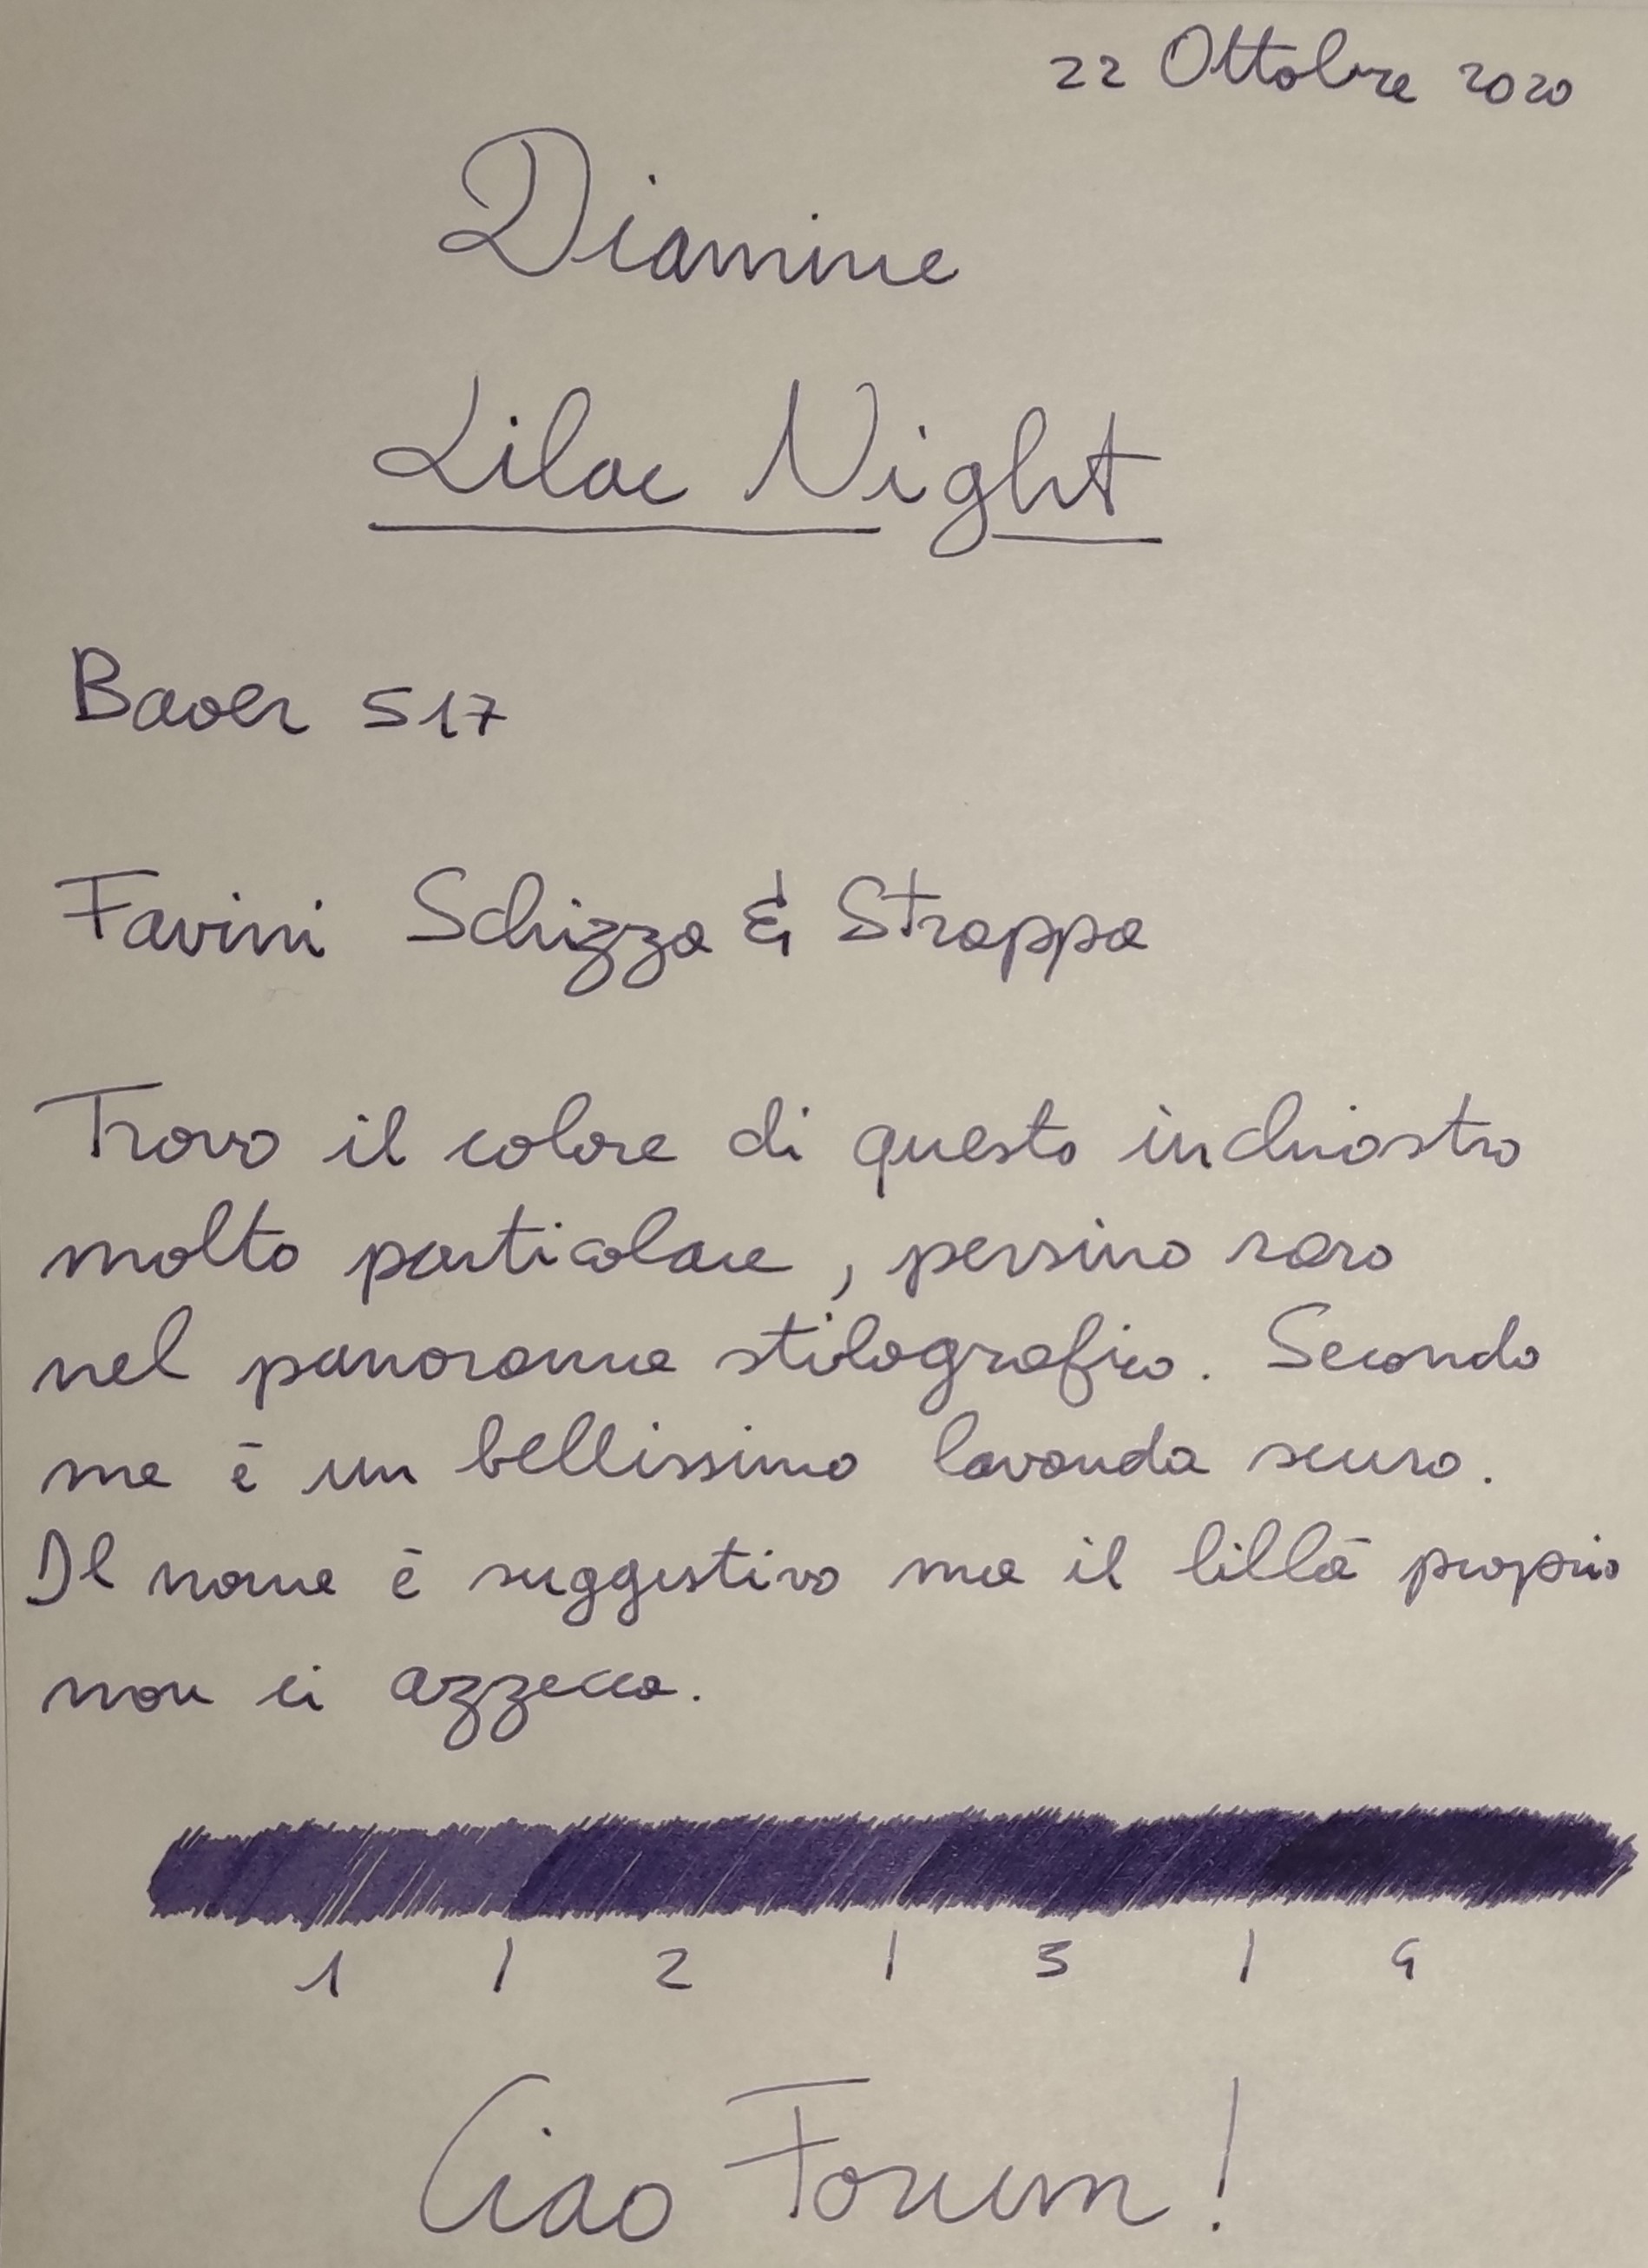 22 Ottobre 2020
Diamine
Lilac Night
Baoer 517
Favini Schizza & Strappa
Trovo il colore di questo inchiostro
molto particolare, persino raro
nel panorama stilografico. Secondo
me è un bellissimo lavanda scuro.
Il nome è suggestivo ma il lillà proprio
non ci azzecca.
1 | 2 | 3 | 4
Ciao Forum!